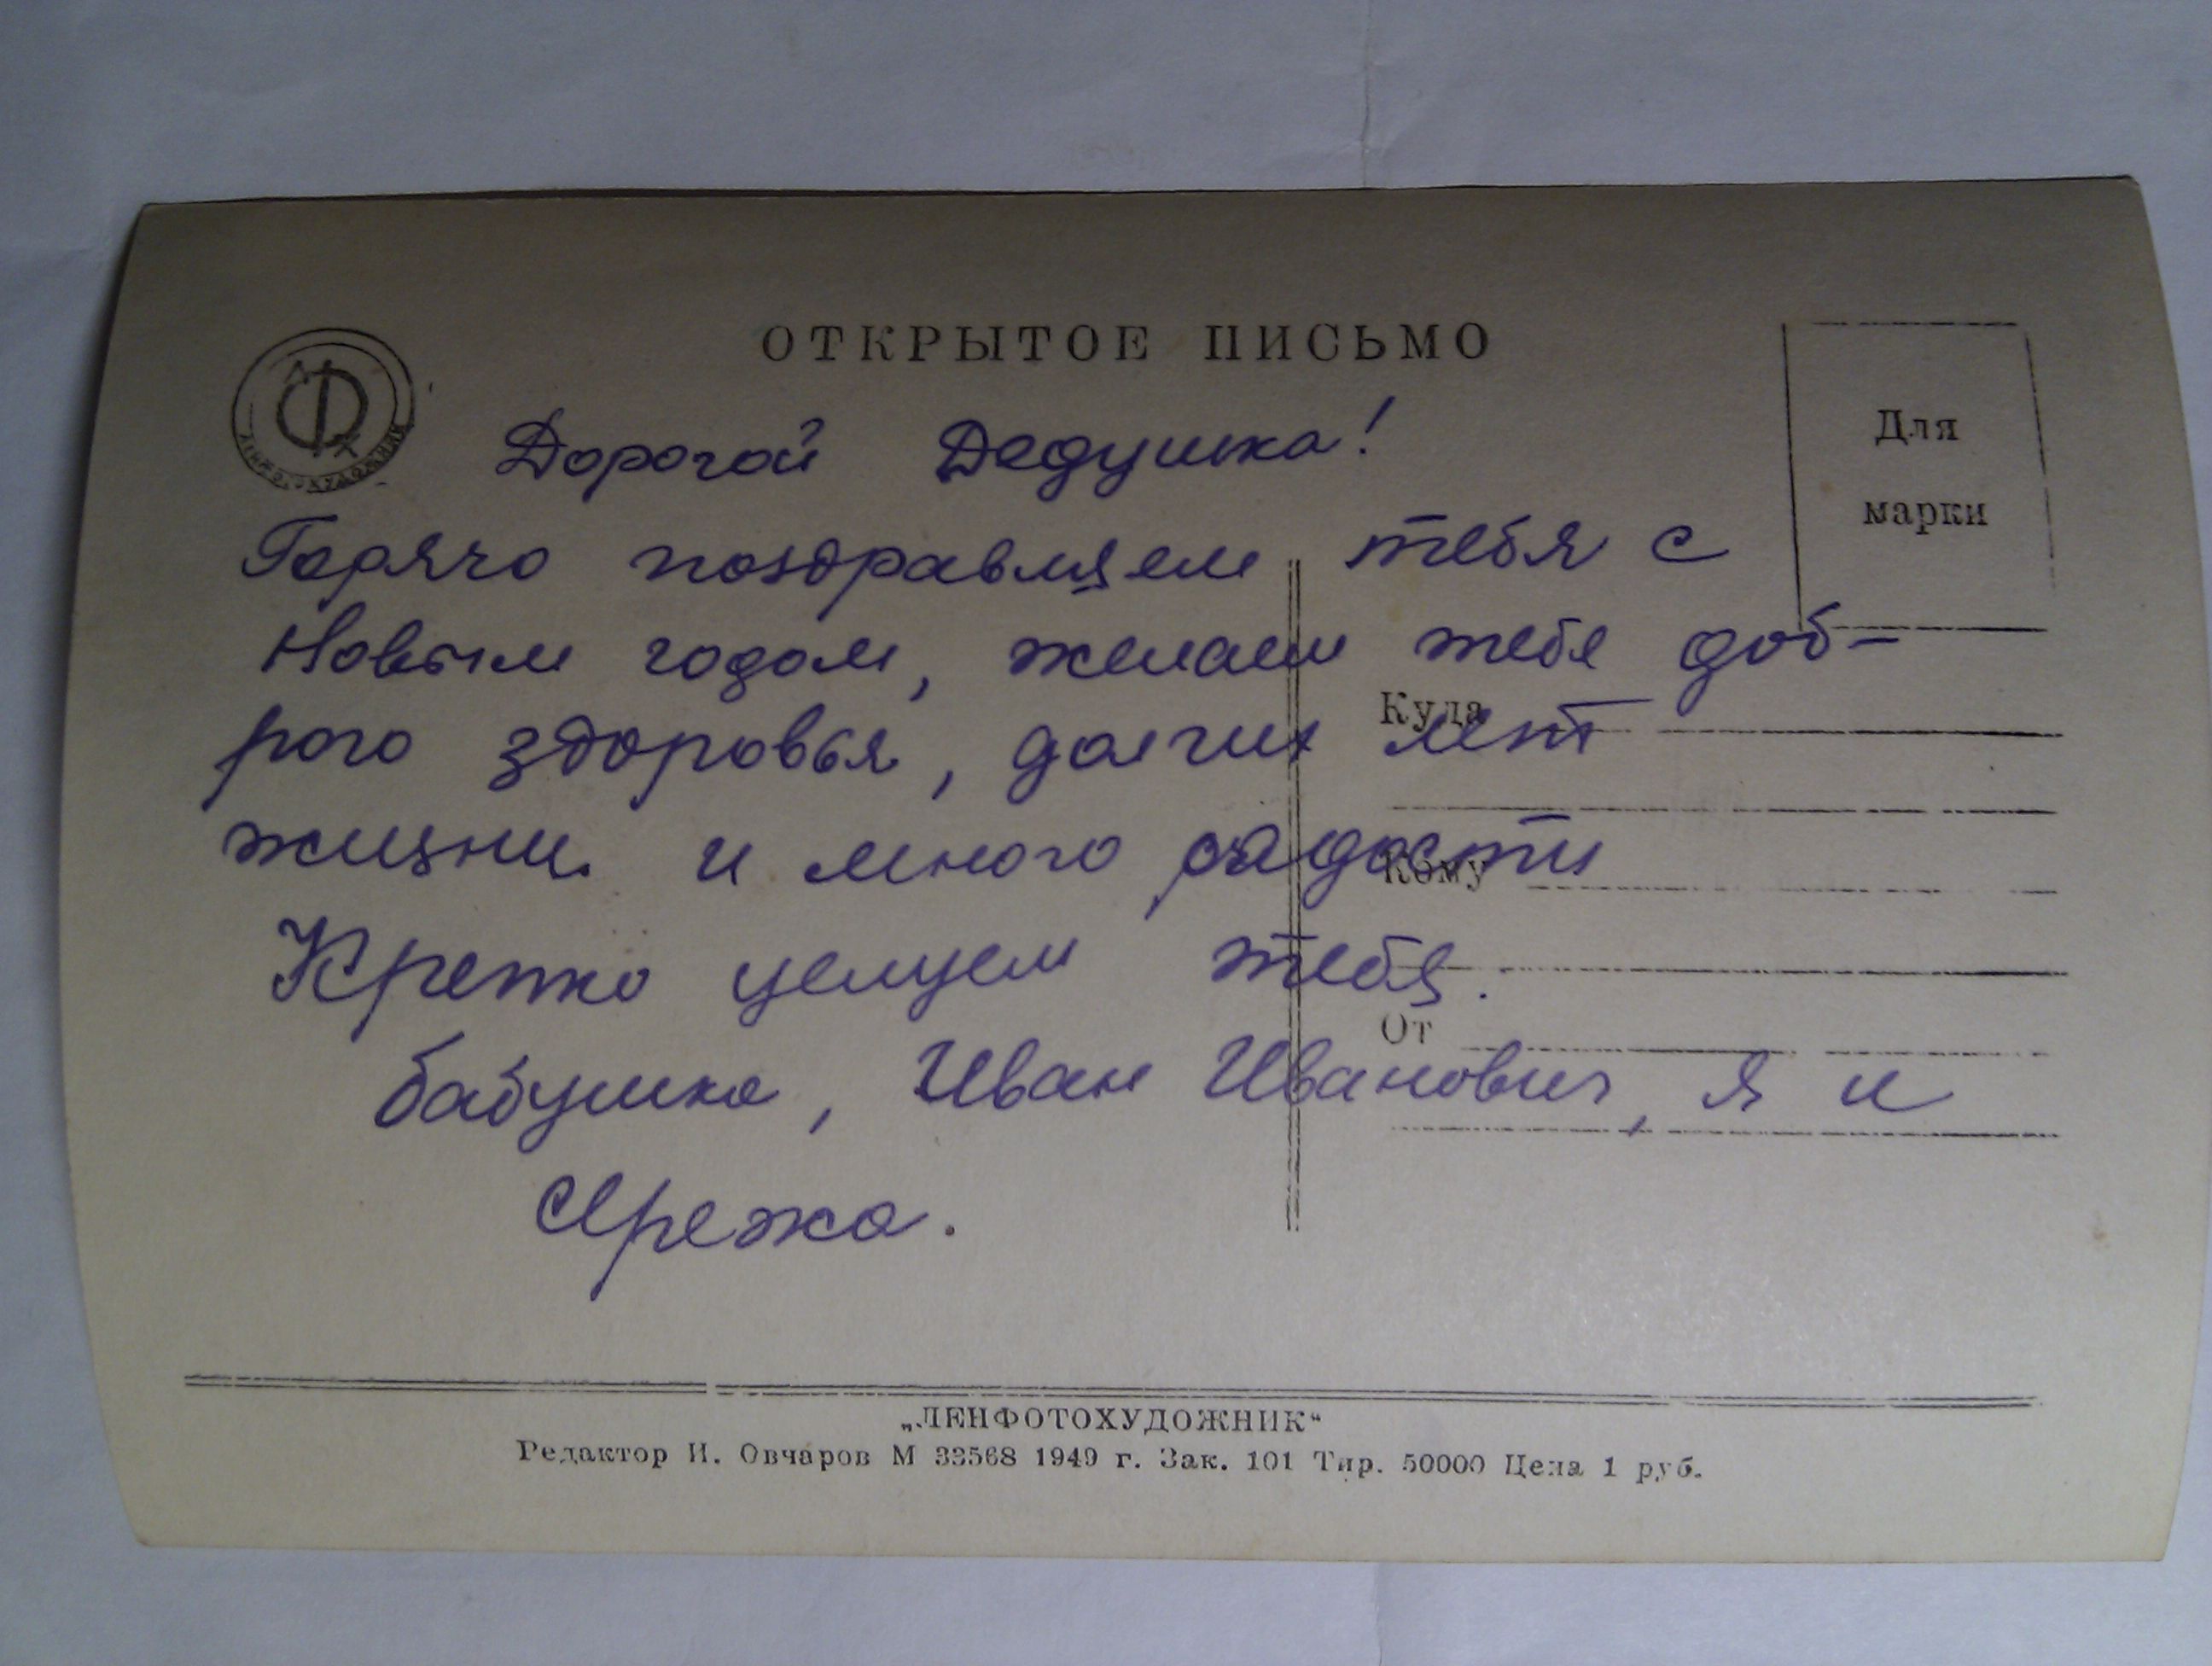 ОТКРЫТОЕ ПИСЬМО
ЛЕНФОТОХУДОЖНИК
Для
марки
Дорогой Дедушка!
Горячо поздравляем тебя с
Новым годом, желаем тебе доб-
рого здоровья, долгих лет
жизни и много радости
Крепко целуем тебя.
бабушка, Иван Иванович, я и
Куда
Кому
От
„ЛЕНФОТОХУДОЖНИК“
Редактор И. Овчаров М 33568 1949 г. Зак. 101 Тир. 50000 Цена 1 руб.